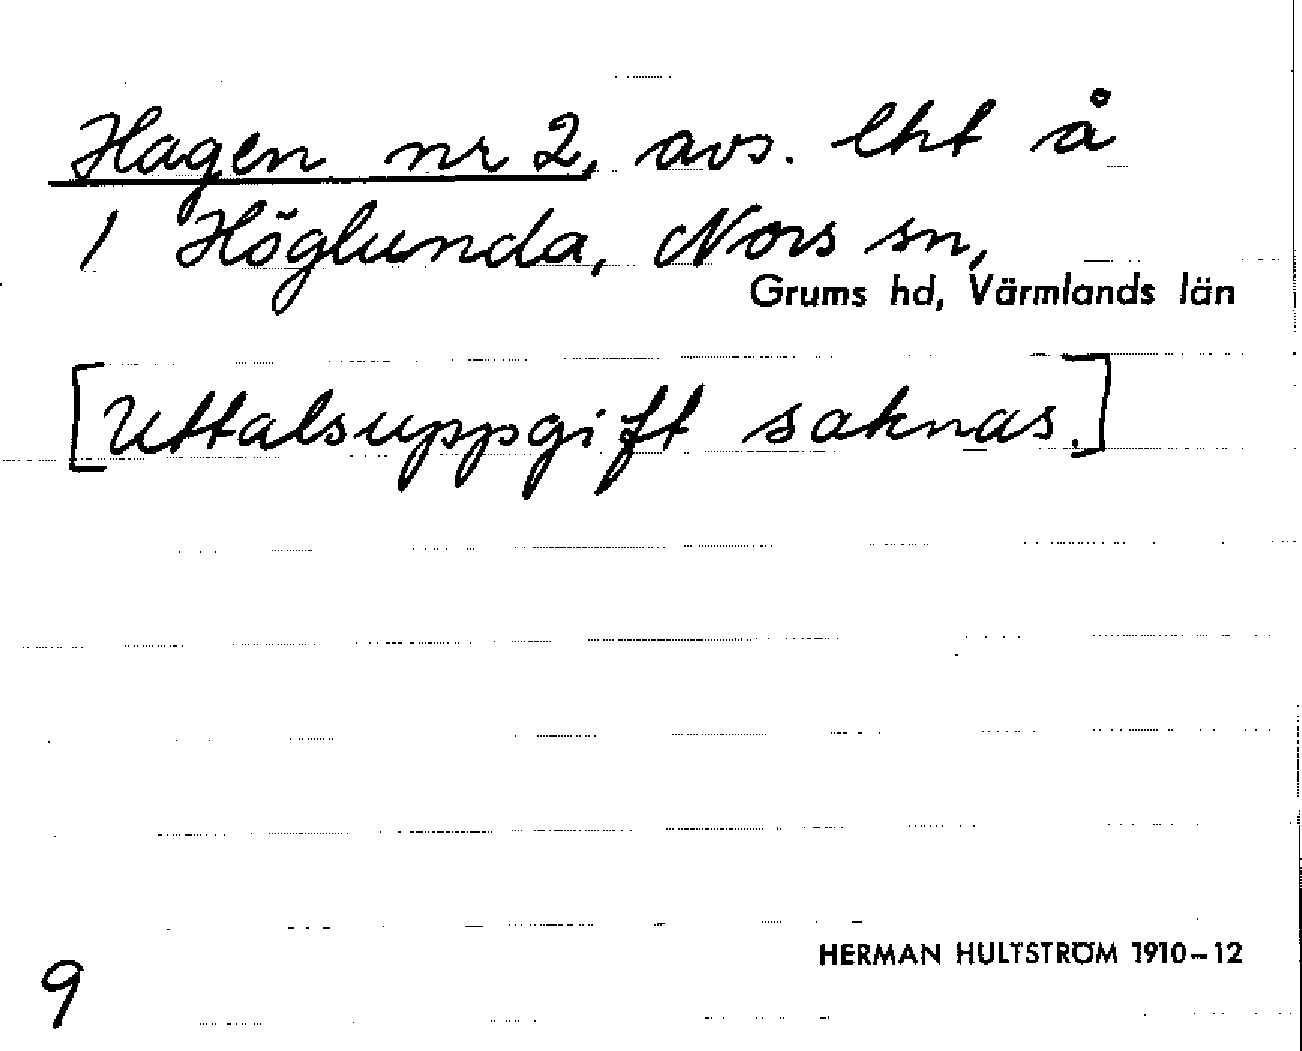 Hagen nr 2, avs. lht å
1 Höglunda, Nors sn,
Grums hd, Värmlands län
[Uttalsuppgift saknas.]
HERMAN HULTSTRÖM 1910–12
9